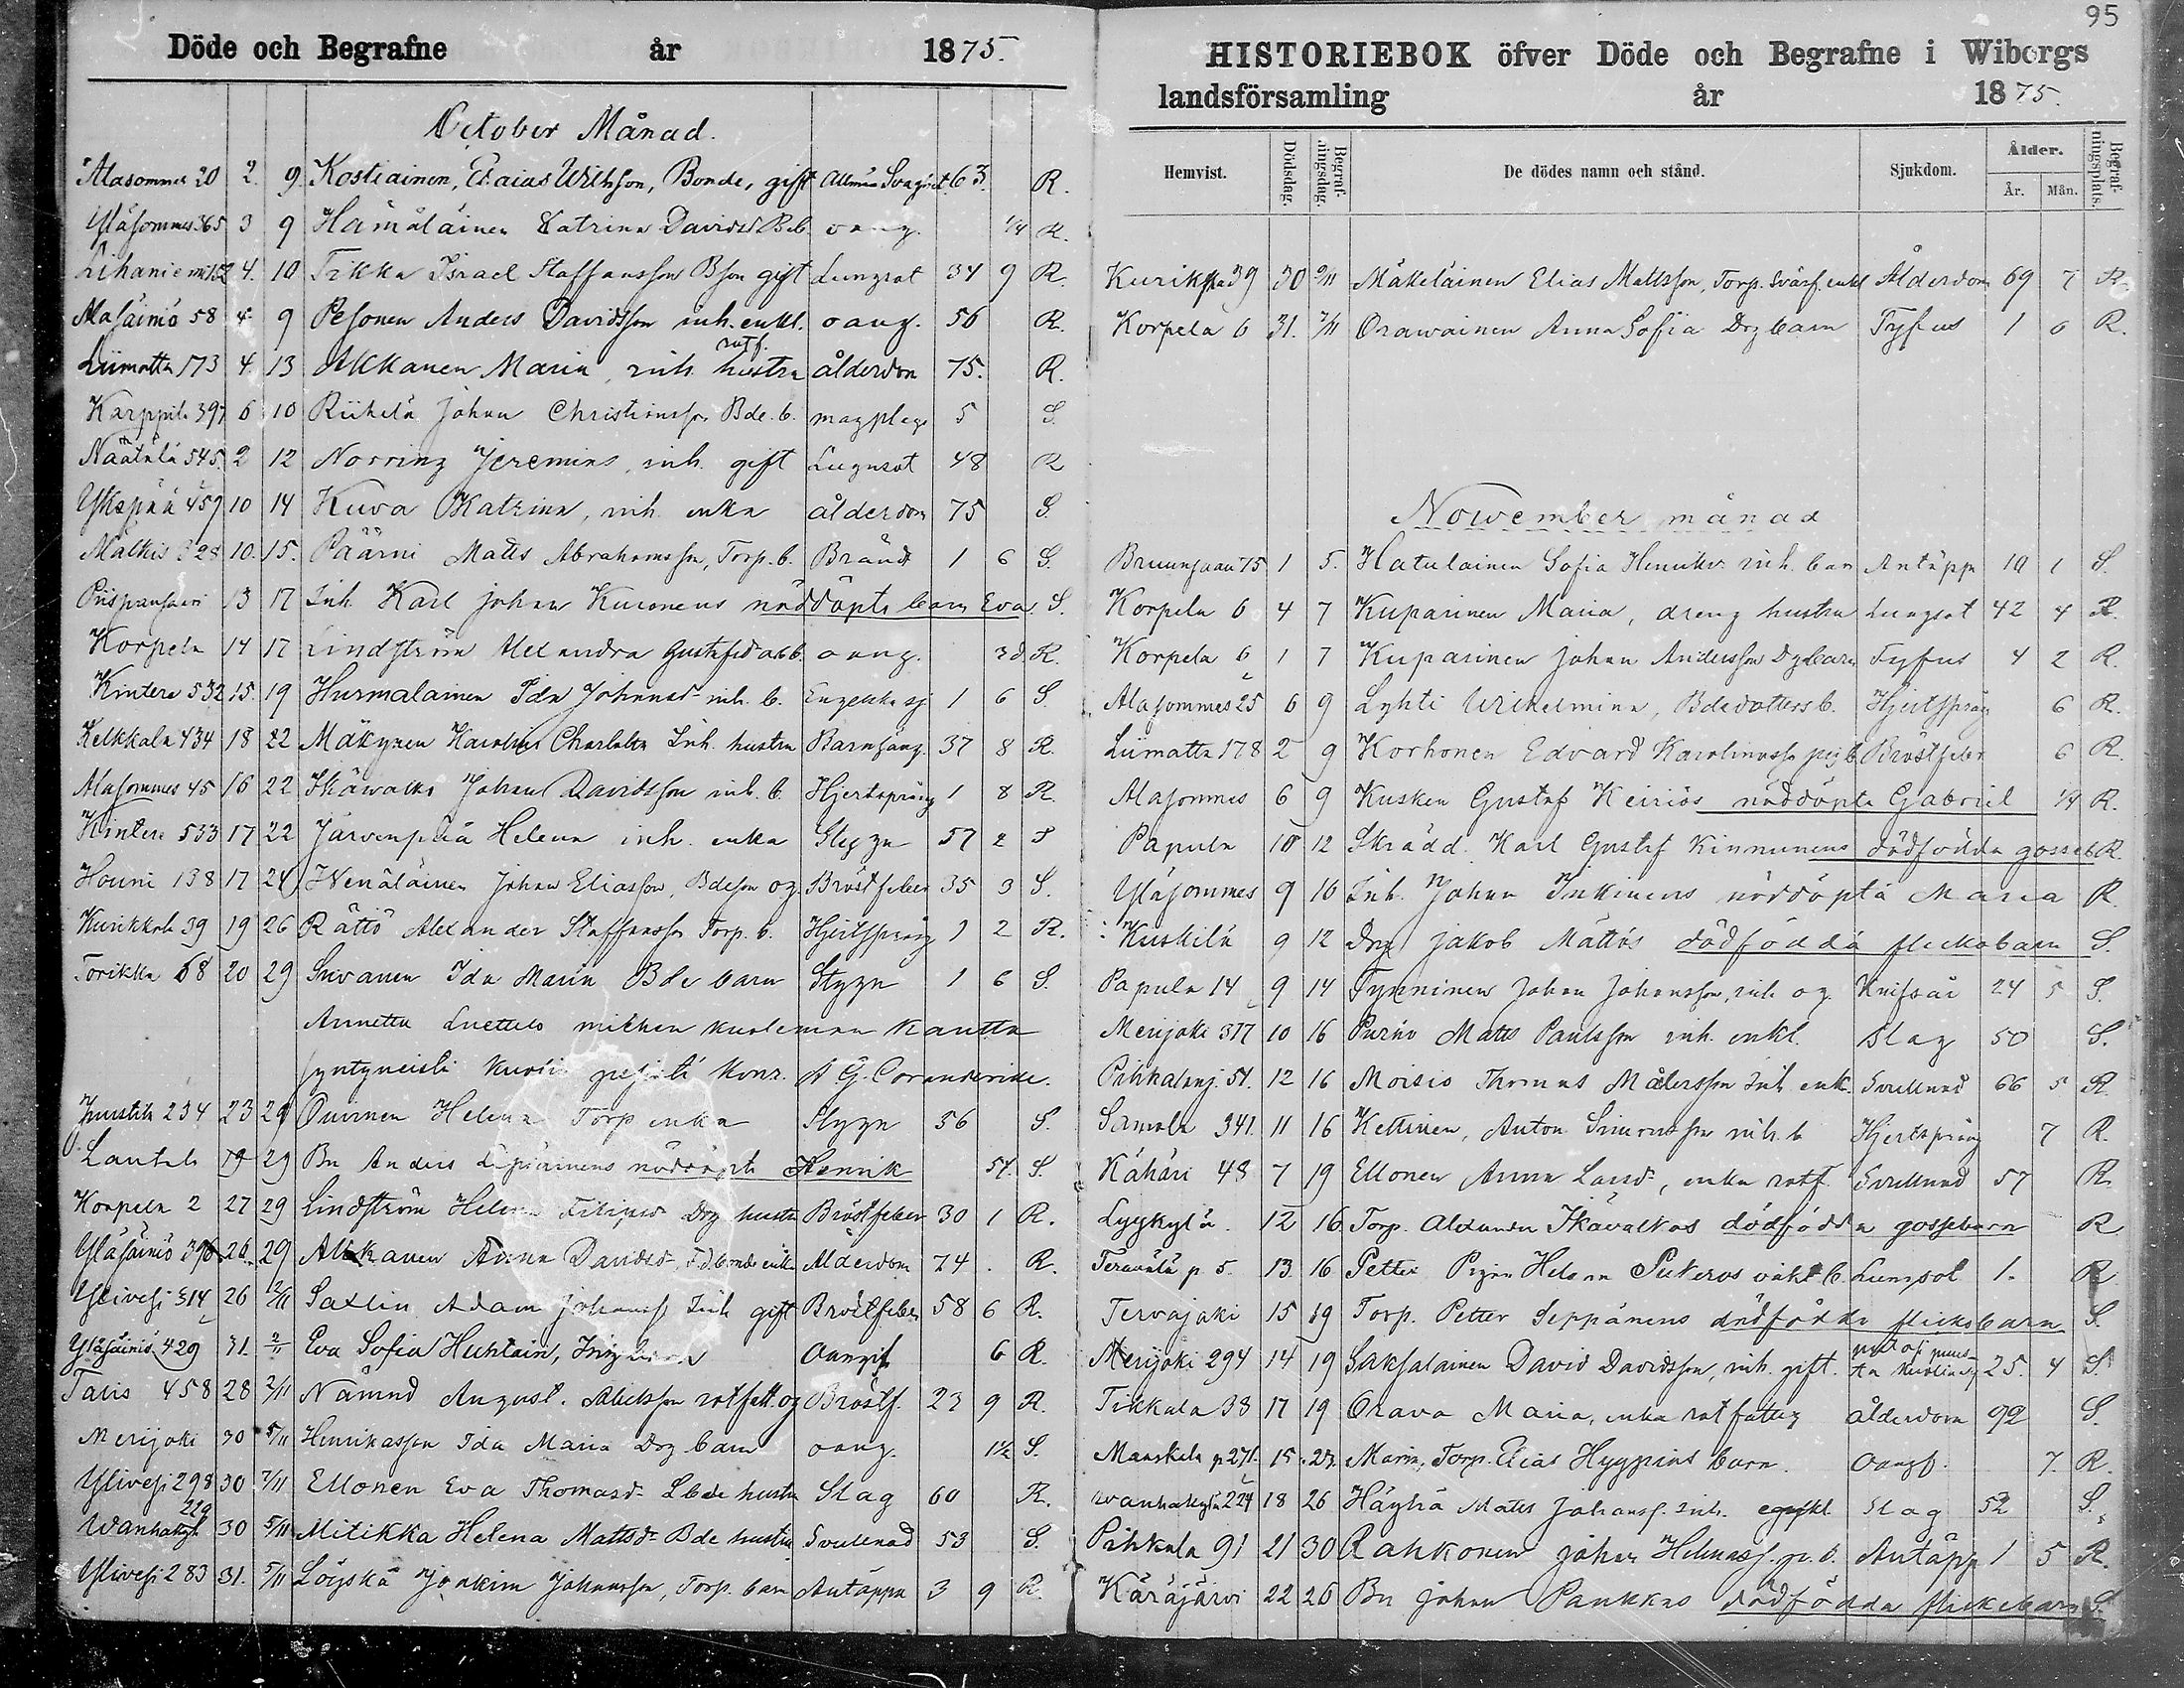 Döde och Begrafne år 1875.
October Månad.
Alasommes 20 2. 9. Kostiainen, Esaias Wilhsson, Bonde, gift Allmän Svaghet. 63. R.
Yläsommes 365 3 9 Hämäläinen Catrina Davidsd Bdeb. oang. 1/4 R.
4. 10 Tikka Israel Staffansson Bson gift Lungsot 34 9 R.
Alasäiniö 58 4 9 Pesonen Anders Davidsson inh. enkl. oang. 56 R.
Liimatta 173 4. 13 Akkanen Maria, inh. rotf. hustru ålderdom 75. R.
Karppila 397 6 10 Riihelä Johan Christiansson Bde. b. magplåga 5 S.
Näätälä 545 2 12 Norring Jeremias, inh. gift Lungsot 48 R
Ykspää 459 10 14 Kuva Katrina, inh. enka ålderdom 75 S.
Mälkis 328 10. 15. Päärni Matts Abrahamsson, Torp. b. Brånd 1 6 S.
Piispansaari 13 17 Inh. Karl Johan Kuronens nöddöpta barn Eva. S.
Korpela 14 17 Lindström Alexandra Gustafsd oäb. oang. 3d R.
Kintere 532 15. 19 Hurmalainen Ida Johansd inh. b. Engelska sj 1 6 S.
Kelkkala 434 18 22 Mäkynen Karolina Charlotta Inh. hustru Barnsäng. 37 8 R.
Alasommes 45 16 22 Ikäwalko Johan Davidsson inh. b. Hjertspräng 1 8 R.
Kintere 533 17 22 Järvenpää Helena inh. enka Stygn 57 2 S
Houni 138 17 24 Wenäläinen Johan Eliasson, Bdeson og. Bröstfeber 35 3 S.
Kurikkala 39 19 26 Rättö Alexander Staffansson Torp. b. Hjertspräng 1 2 R.
Torikka 68 20 29 Suvanen Ida Maria Bde barn Stygn 1 6 S.
Annettu Luettelo miehen kuoleman kautta
A G. Coranderille.
Juustila 234 23 29 Ouvinen Helena Torp enka Stygn 56 S.
Lavola 19 29 Bn Anders nöddöpta Henrik S.
Korpela 2 27 29 Lindström Helena Filipsd Drg hustru Bröstfeber 30 1 R.
Yläsäiniö 396 26 29 Akkanen Anna Davidsd, F.d. bonde enka Ålderdom 74. R.
Ylivesi 314 26 2/11 Saxlin Adam Johanss Inh gift Bröstfeber 58 6 R.
Yläsäiniö 429 31. 2/11 Eva Sofia Huhtain, Oangif. 6 R.
Talis 458 28 2/11 Nämnd August. rotfatt. og Bröstf. 23 9 R.
Merijoki 30 5/11 Henrikasson Ida Maria Drg barn oang. 1½ S.
Ylivesi 298 30 7/11 Ellonen Eva Thomasd Lbde hustru Slag 60 R.
Wanhakyl. 229 30 5/11 Mitikka Helena Mattsd Bde hustru Svullnad 53 S.
Ylivesi 283 31. 5/11 Löyskä Joakim Johansson, Torp. barn Antäppa 3 9 R.
95
HISTORIEBOK öfver Döde och Begrafne i Wiborgs
landsförsamling år 1875.
Hemvist. Dödsdag. Begrafningsdag. De dödes namn och stånd. Sjukdom. Ålder. År. Mån. Begrafningsplats.
Kurikkala 39 30 2/11 Mäkeläinen Elias Mattsson, Torp. Svärf. enkl Ålderdom 69 7 R.
Korpela 6 31. 7/11 Orawainen Anna Sofia Drg barn Tyfus 1 6 R.
Nowember månad
15 1 5. Hatulainen Sofia Henriksd. inh. barn Antäppa 10 1 S.
Korpela 6 4 7 Kuparinen Maria, dreng hustru Lungsot 42 4 R.
Korpela 6 1 7 Kuparinen Johan Andersson Dgbarn Tyfus 4 2 R.
Alasommes 25 6 9 Lyhti Wilhelmina, Bdedotters b. Hjertspräng 6 R.
Liimatta 178 2 9 Korhonen Edvard Karolinasson pig b. Bröstfeber 6 R.
Alasommes 6 9 Kusken Gustaf Keiriös nöddöpte Gabriel 1/4 R.
Papula 10 12 Skrädd. Karl Gustaf Kinnunens dödfödda gosseb R.
Yläsommes 9 10 Inh. Johan Inkinens nöddöpta Maria R.
Kuskilä 9 12 Drg Jakob Mattäs dödfödda flickobarn S.
Papula 14 9 14 Tynninen Johan Johansson, inh og Knifsår 24 5 S.
Merijoki 377 10 16 Purho Matts Paulsson inh. enkl. Slag 50 S.
Pihkalanj. 51. 12 16 Moisio Thomas Mårtensson Inh. enk. Svullnad 66 5 R.
Samola 341. 11 16 Kettinen, Anton Simonsson inh. b Hjertspräng 7 R.
Kähäri 48 7 19 Ellonen Anna Larsd, enka rotf. Svullnad 57 R.
Lyykylä. 12 16 Torp. Alexander Ikävalkos dödfödda gossebarn R
p. 5. 13 16 Petter Pigan Helena Pukeros oäkt b. Lungsot 1. R
Tervajoki 15 19 Torp. Petter Seppänens dödfödda flickobarn S.
Merijoki 294 14 19 Saksalainen David Davidsson, inh. gift. 25. 4 S.
Tikkala 38 17 19 Orava Maria, enka rotfattig ålderdom 92 S.
Manskela p 271. 15. 23. Maria, Torp. Elias Hyypiäs barn. oangf. 7. R.
Wanhakylä 224 18 26 Häyhä Matts Johanss. Inh. Slag 52 S.
Pihkala 91 21 30 Rahkonen Johan Helenass. pi. b. Antäpp 1 5 R.
Käräjärvi 22 26 Bn Johan Paukkus dödfödda flickebarn S.